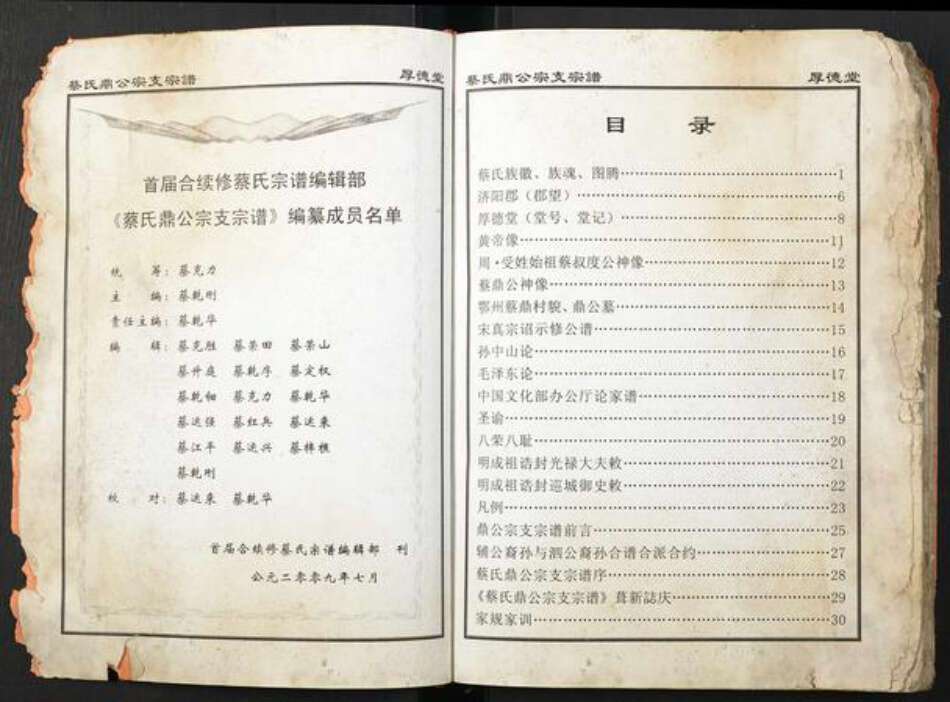 蔡氏鼎公宗支宗譜
厚德堂
首届合续修蔡氏宗谱编辑部
《蔡氏鼎公宗支宗谱》编纂成员名单
统 筹：蔡克力
主 编：蔡乾刚
责任主编：蔡乾华
编 辑：蔡克胜 蔡荣田 蔡荣山
蔡升庭 蔡乾序 蔡定权
蔡乾细 蔡克力 蔡乾华
蔡运强 蔡红兵 蔡运来
蔡江平 蔡运兴 蔡梓樵
蔡乾刚
校 对：蔡运来 蔡乾华
首届合续修蔡氏宗谱编辑部 刊
公元二零零九年七月
蔡氏鼎公宗支宗譜
厚德堂
目 录
蔡氏族徽、族魂、图腾……1
济阳郡（郡望）……6
厚德堂（堂号、堂记）……8
黄帝像……11
周·受姓始祖蔡叔度公神像……12
蔡鼎公神像……13
鄂州蔡鼎村貌、鼎公墓……14
宋真宗诏示修公谱……15
孙中山论……16
毛泽东论……17
中国文化部办公厅论家谱……18
圣谕……19
八荣八耻……20
明成祖诰封光禄大夫敕……21
明成祖诰封巡城御史敕……22
凡例……23
鼎公宗支宗谱前言……25
辅公裔孙与泗公裔孙合谱合派合约……27
蔡氏鼎公宗支宗谱序……28
《蔡氏鼎公宗支宗谱》葺新誌庆……29
家规家训……30